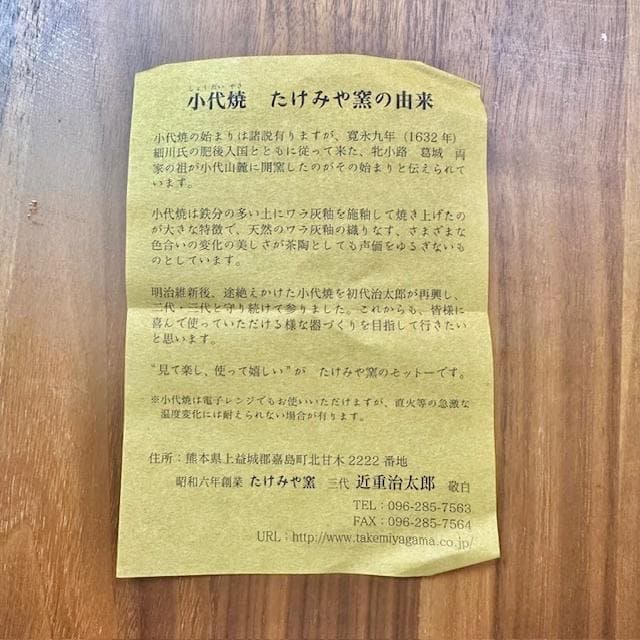 しょうだいやき
小代焼　たけみや窯の由来
小代焼の始まりは諸説有りますが、寛永九年（1632年）
細川氏の肥後入国とともに従って来た、牝小路　葛城　両
家の祖が小代山麓に開窯したのがその始まりと伝えられて
います。
小代焼は鉄分の多い土にワラ灰釉を施釉して焼き上げたの
が大きな特徴で、天然のワラ灰釉の織りなす、さまざまな
色合いの変化の美しさが茶陶としても声価をゆるぎないも
のとしています。
明治維新後、途絶えかけた小代焼を初代治太郎が再興し、
二代・三代と守り続けて参りました。これからも、皆様に
喜んで使っていただける様な器づくりを目指して行きたい
と思います。
“見て楽し、使って嬉しい”が　たけみや窯のモットーです。
※小代焼は電子レンジでもお使いいただけますが、直火等の急激な
温度変化には耐えられない場合が有ります。
住所：熊本県上益城郡嘉島町北甘木2222番地
昭和六年創業　たけみや窯　三代　近重治太郎　敬白
TEL：096-285-7563
FAX：096-285-7564
URL：http://www.takemiyagama.co.jp/